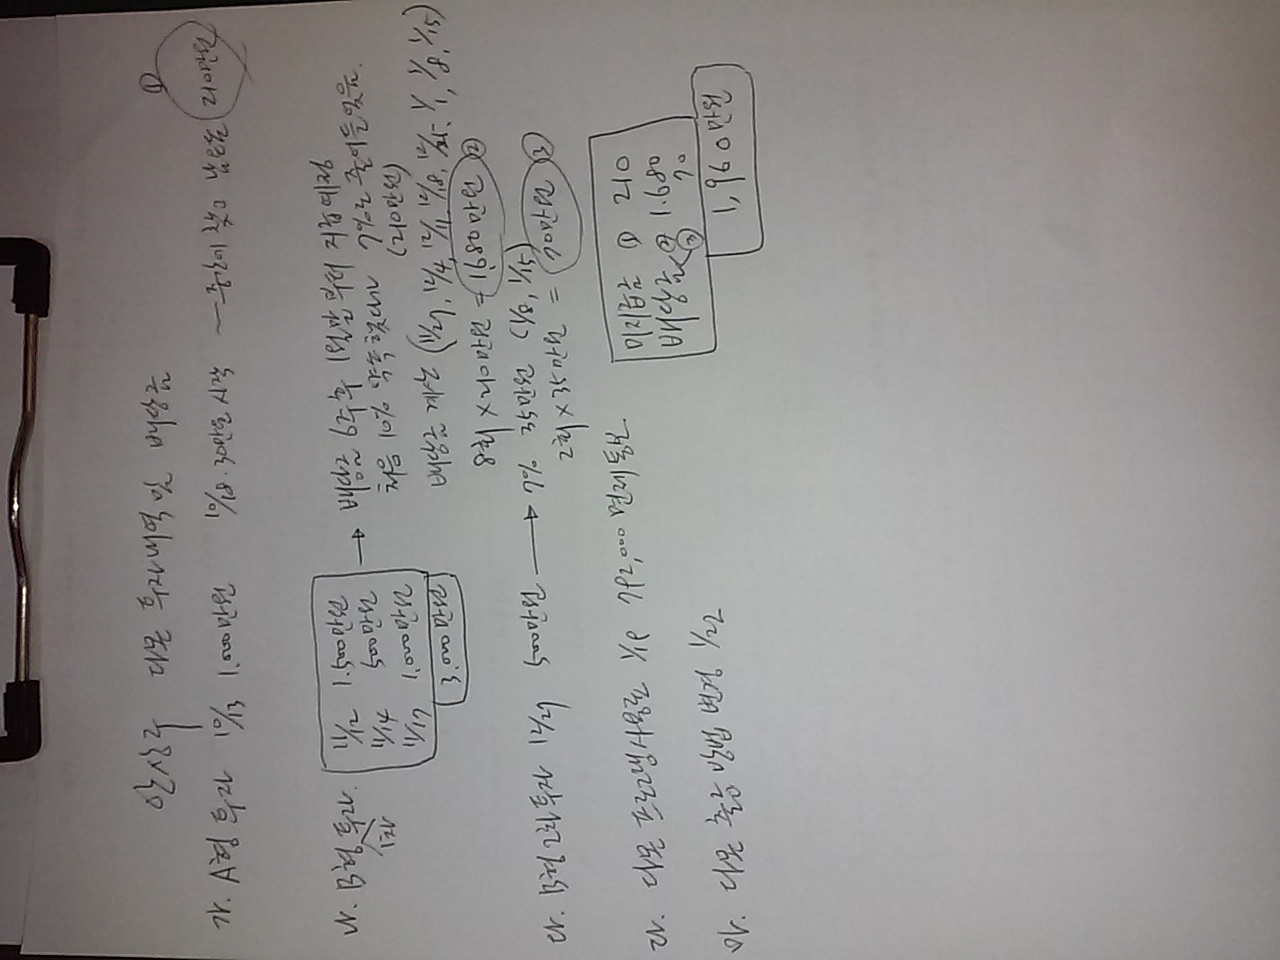 안상구 다몬 투자내역 및 배당금
가. A형 투자 10/13 1.000만원 10/18. 30만원 시작 ~중간에 찾고 남은돈 210만원 ①
나. B형 투자. 1차
11/12 1.500만원
11/14 500만원
11/17 1.000만원
3.000만원
→ 배당금 6주후 1월말부터 지급예정
처음 10% 약속했다가 7%로 줄어들었음.
(210만원)
배당금 계산 (11/27, 12/4, 12/11, 12/18, 12/25, 1/1, 1/8, 1/15)
8회 × 210만원 = 1.680만원 ②
다. B형 2차 투자 12/27 500만원 → 7% 35만원 (1/8, 1/15)
2회 × 35만원 = 70만원 ③
라. 다몬 프로그램사용료 1/19 792,000 면제통보.
마. 다몬 출금 방법 변경 1/22
미지급금 ① 210
배당금 ② 1.680
③ 70
1,960만원